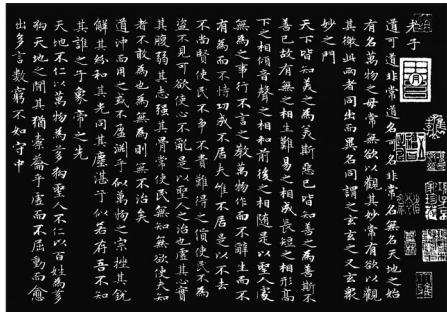 老子
道可道非常道名可名非常名無名天地之始
有名萬物之母常無欲以觀其妙常有欲以觀
其徼此兩者同出而異名同謂之玄玄之又玄衆
妙之門
天下皆知美之為美斯惡已皆知善之為善斯不
善已故有無之相生難易之相成長短之相形高
下之相傾音聲之相和前後之相隨是以聖人處
無為之事行不言之教萬物作而不辭生而不
有為而不恃功成不居夫惟不居是以不去
不尚賢使民不爭不貴難得之貨使民不為
盜不見可欲使心不亂是以聖人之治也虛其心實
其腹弱其志強其骨常使民無知無欲使夫知
者不敢為也為無為則無不治矣
道沖而用之或不盈淵乎似萬物之宗挫其銳
解其紛和其光同其塵湛乎似若存吾不知
其誰之子象帝之先
天地不仁以萬物為芻狗聖人不仁以百姓為芻
狗天地之間其猶橐籥乎虛而不屈動而愈
出多言數窮不如守中